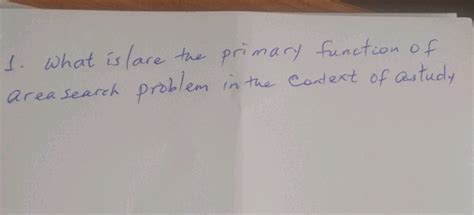 1. What is/are the primary function of
area search problem in the context of a study